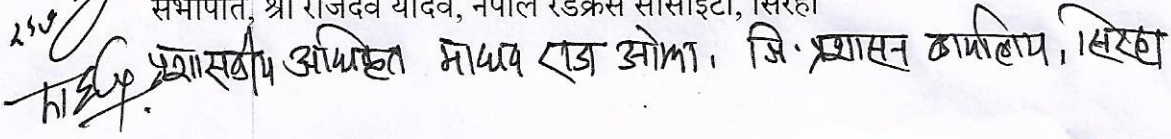 सभापति, श्री राजदेव यादव, नेपाल रेडक्रस सोसाइटी, सिरहा
प्रशासकीय अधिकृत माधव राज ओझा, जि. प्रशासन कार्यालय, सिरहा